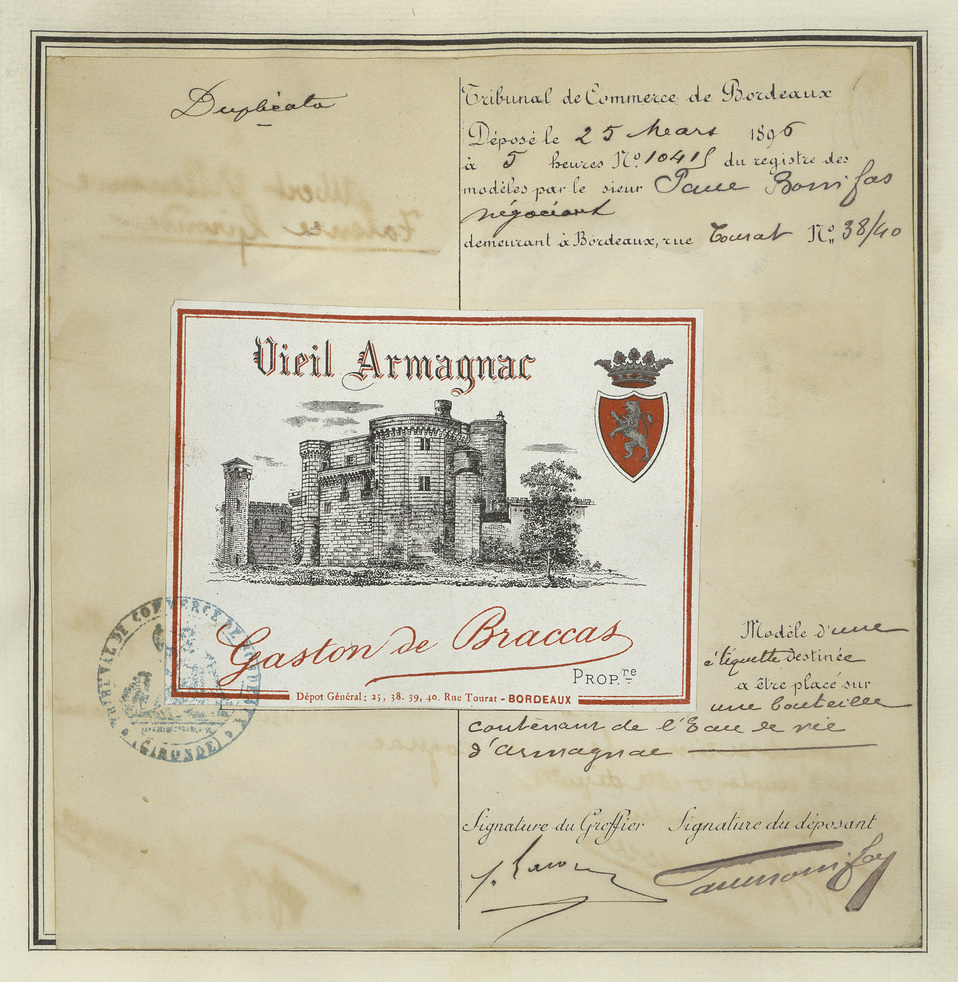 Duplicata
Tribunal de Commerce de Bordeaux
Déposé le 25 Mars 1896
à 5 heures Nº 10415 du registre des
modèles par le sieur Paul Bonnifas
négociant
demeurant à Bordeaux, rue Tourat Nº 38/40
Vieil Armagnac
Gaston de Braccas
PROP.re
Dépot Général: 25, 38. 39, 40. Rue Tourat - BORDEAUX
TRIBUNAL DE COMMERCE DE BORDEAUX
(GIRONDE)
Modèle d'une
étiquette destinée
a être placé sur
une bouteille
contenant de l'Eau de vie
d'Armagnac
Signature du Greffier Signature du déposant